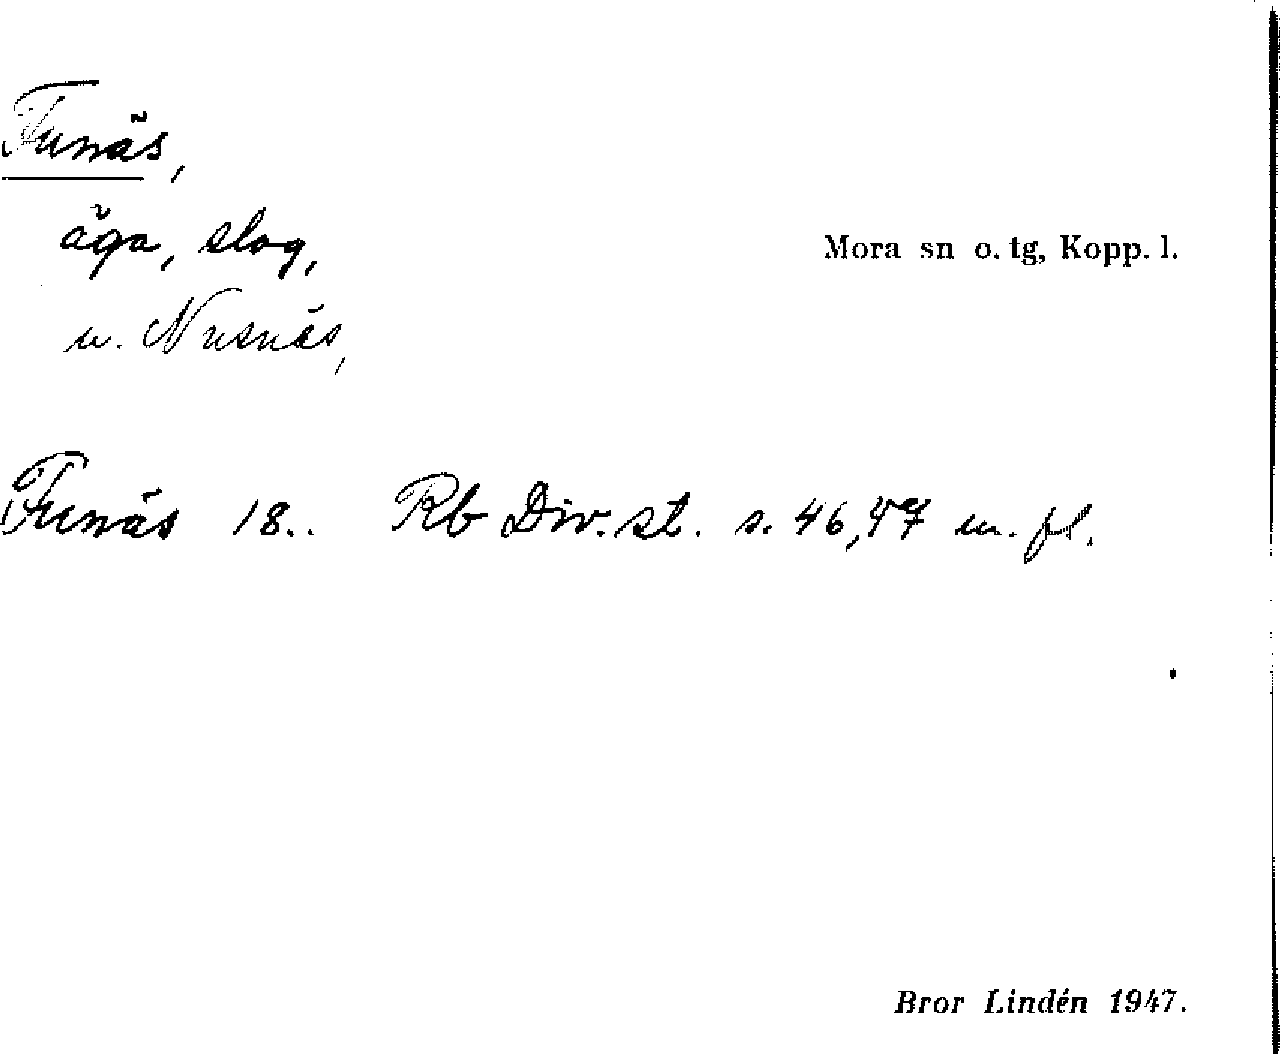 Funäs,
äga, slog,
Mora sn o. tg, Kopp. l.
u. Nusnäs,
Funäs 18.. Rb Div. st. s. 46,47 m. fl.
Bror Lindén 1947.